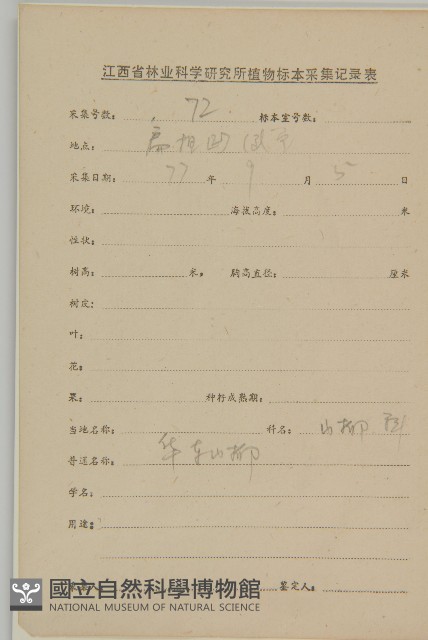 江西省林业科学研究所植物标本采集记录表
采集号数： 72. 标本室号数：
地点：
采集日期： 77 年 9 月 5 日
环境： 海拔高度： 米
性状：
树高： 米， 胸高直径： 厘米
树皮：
叶：
花：
果： 种籽成熟期：
当地名称： 科名： 山柳科
普通名称： 华东山柳
学名：
用途：
鉴定人：
國立自然科學博物館
NATIONAL MUSEUM OF NATURAL SCIENCE